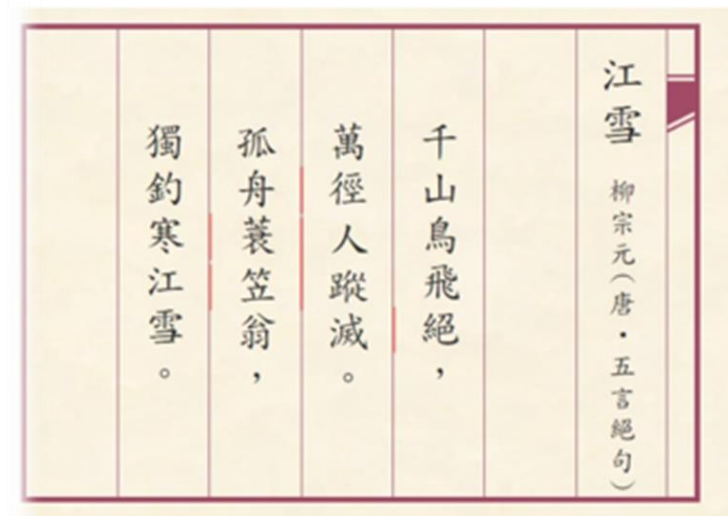 江雪 柳宗元(唐・五言絕句)
千山鳥飛絕，
萬徑人蹤滅。
孤舟蓑笠翁，
獨釣寒江雪。